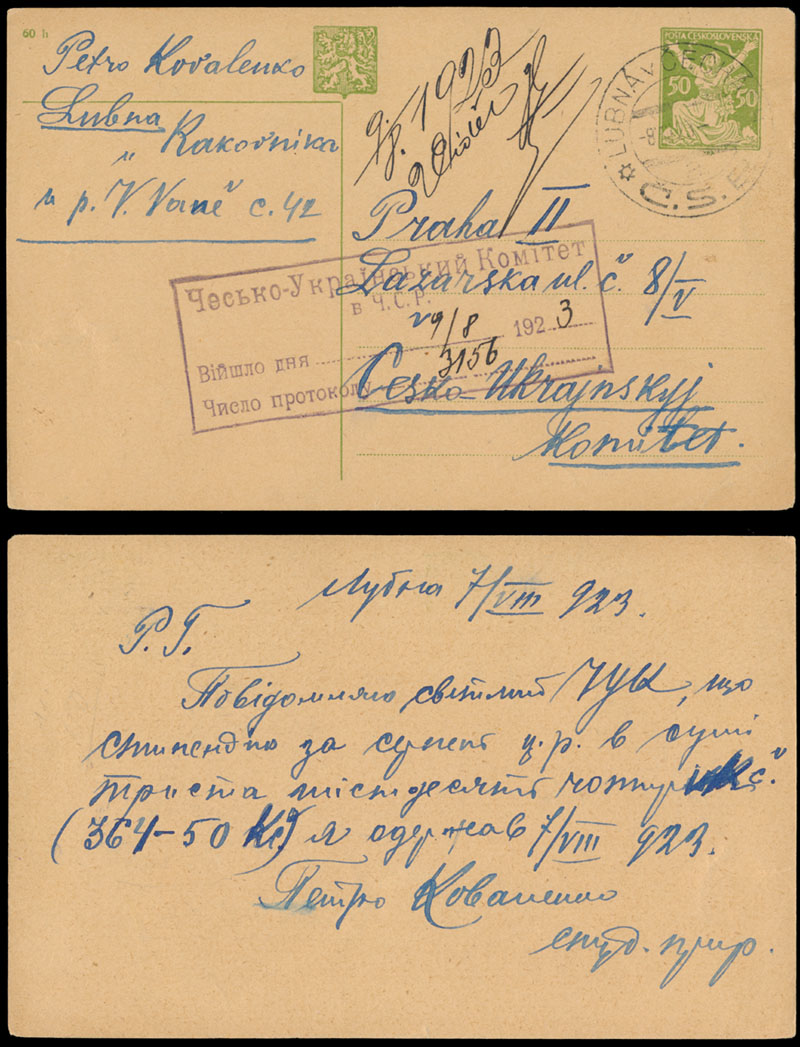 60 h
Petro Kovalenko
Lubna
u Rakovníka
u p. V. Vaně č. 42
POŠTA ČESKOSLOVENSKÁ
50 50
LUBNÁ
Č.S.R.
1923
Praha II
Lazarska ul. č. 8/V
Česko-Ukrajinskyj
Komitet.
Чесько-Український Комітет
в Ч.С.Р.
Війшло дня 9/8 1923
Число протоколу 3156
Лубна 7/VIII 923.
Р. Г.
Повідомляю світлий ЧУК, що
стипендію за серпень ц.р. в сумі
триста шістдесят чотири Кč.
(364-50 Кč) я одержав 7/VIII 923.
Петро Коваленко
студ. прир.